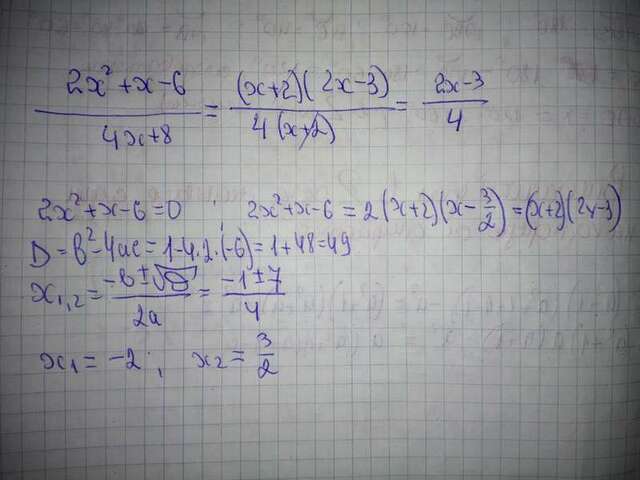 (2x²+x-6)/(4x+8) = ((x+2)(2x-3))/(4(x+2)) = (2x-3)/4
2x²+x-6=0; 2x²+x-6=2(x+2)(x-3/2)=(x+2)(2x-3)
D=b²-4ac=1-4·2·(-6)=1+48=49
x₁,₂=(-b±√D)/(2a)=(-1±7)/4
x₁=-2; x₂=3/2